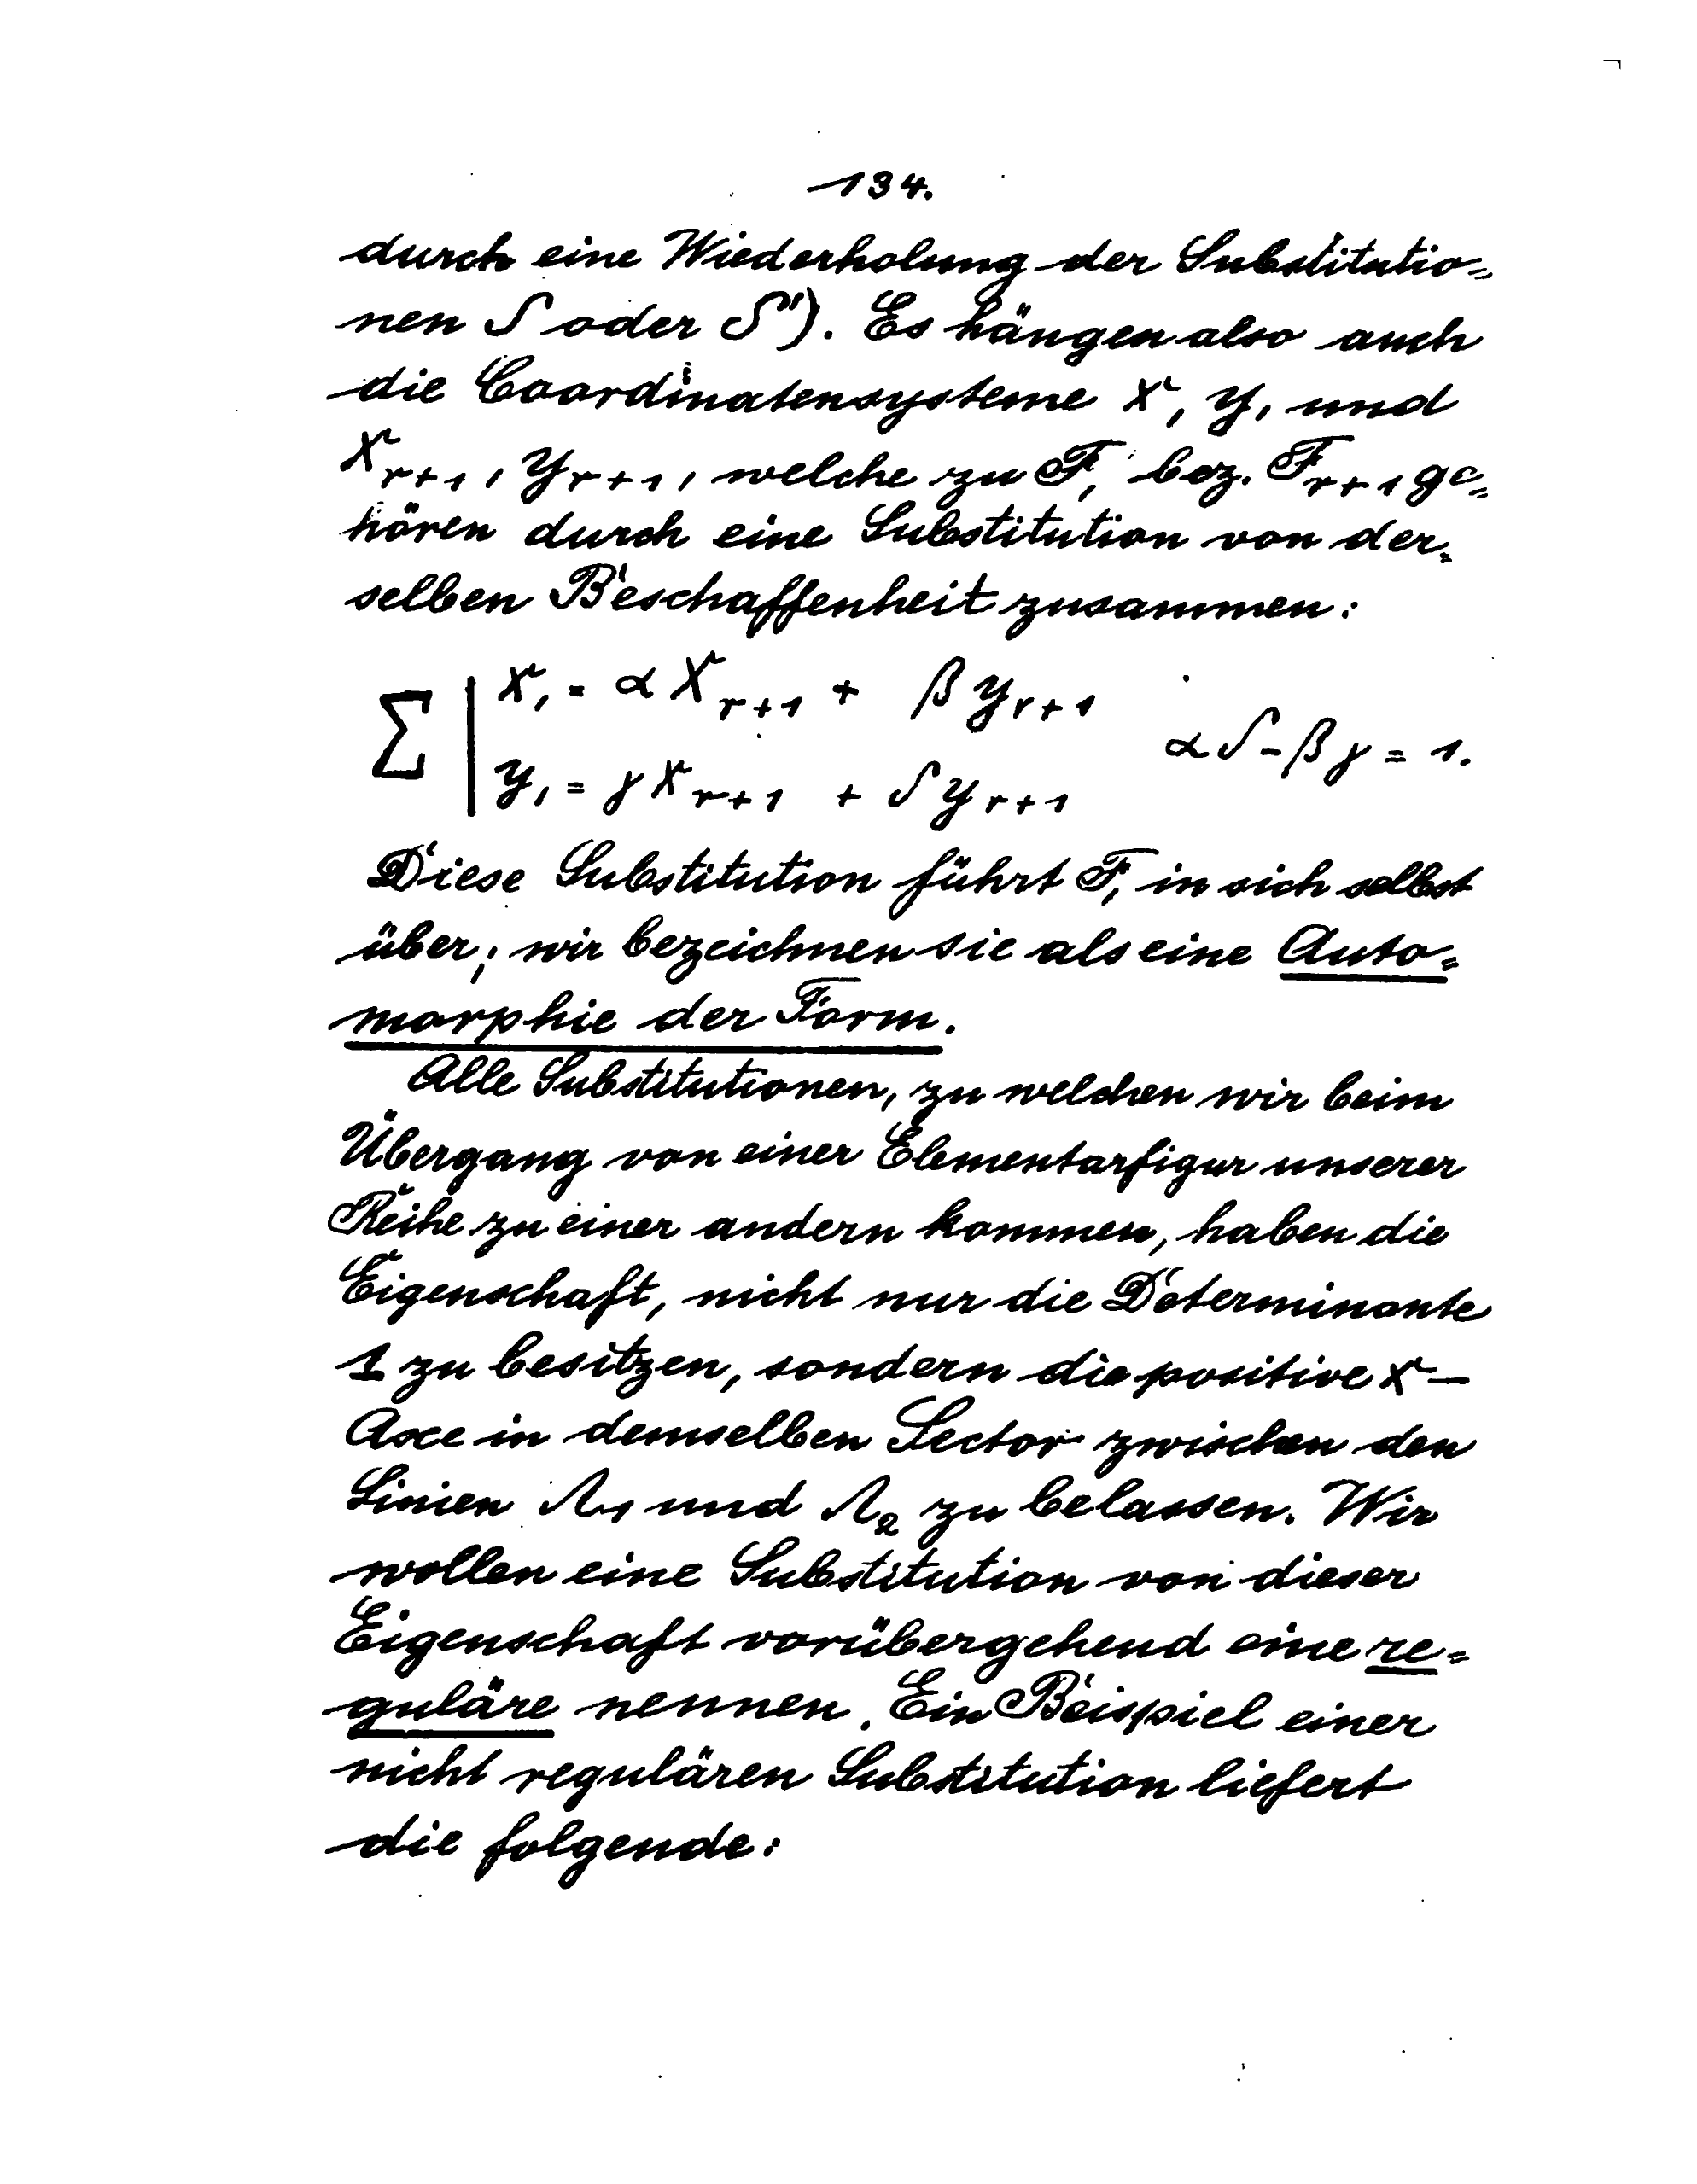 134.
durch eine Wiederholung der Substitutio=
nen S oder S'). Es hängen also auch
die Coordinatensysteme X, Y, und
X_{r+1}, Y_{r+1}, welche zu F, bez. F_{r+1} ge=
hören durch eine Substitution von der=
selben Beschaffenheit zusammen:
Σ | X_1 = α X_{r+1} + β Y_{r+1}
αδ - βγ = 1.
Y_1 = γ X_{r+1} + δ Y_{r+1}
Diese Substitution führt F_1 in sich selbst
über; wir bezeichnen sie als eine Auto=
morphie der Form.
Alle Substitutionen, zu welchen wir beim
Übergang von einer Elementarfigur unserer
Reihe zu einer andern kommen, haben die
Eigenschaft, nicht nur die Determinante
1 zu besitzen, sondern die positive X-
Axe in demselben Sector zwischen den
Linien Λ_1 und Λ_2 zu belassen. Wir
wollen eine Substitution von dieser
Eigenschaft vorübergehend eine re=
guläre nennen. Ein Beispiel einer
nicht regulären Substitution liefert
die folgende: